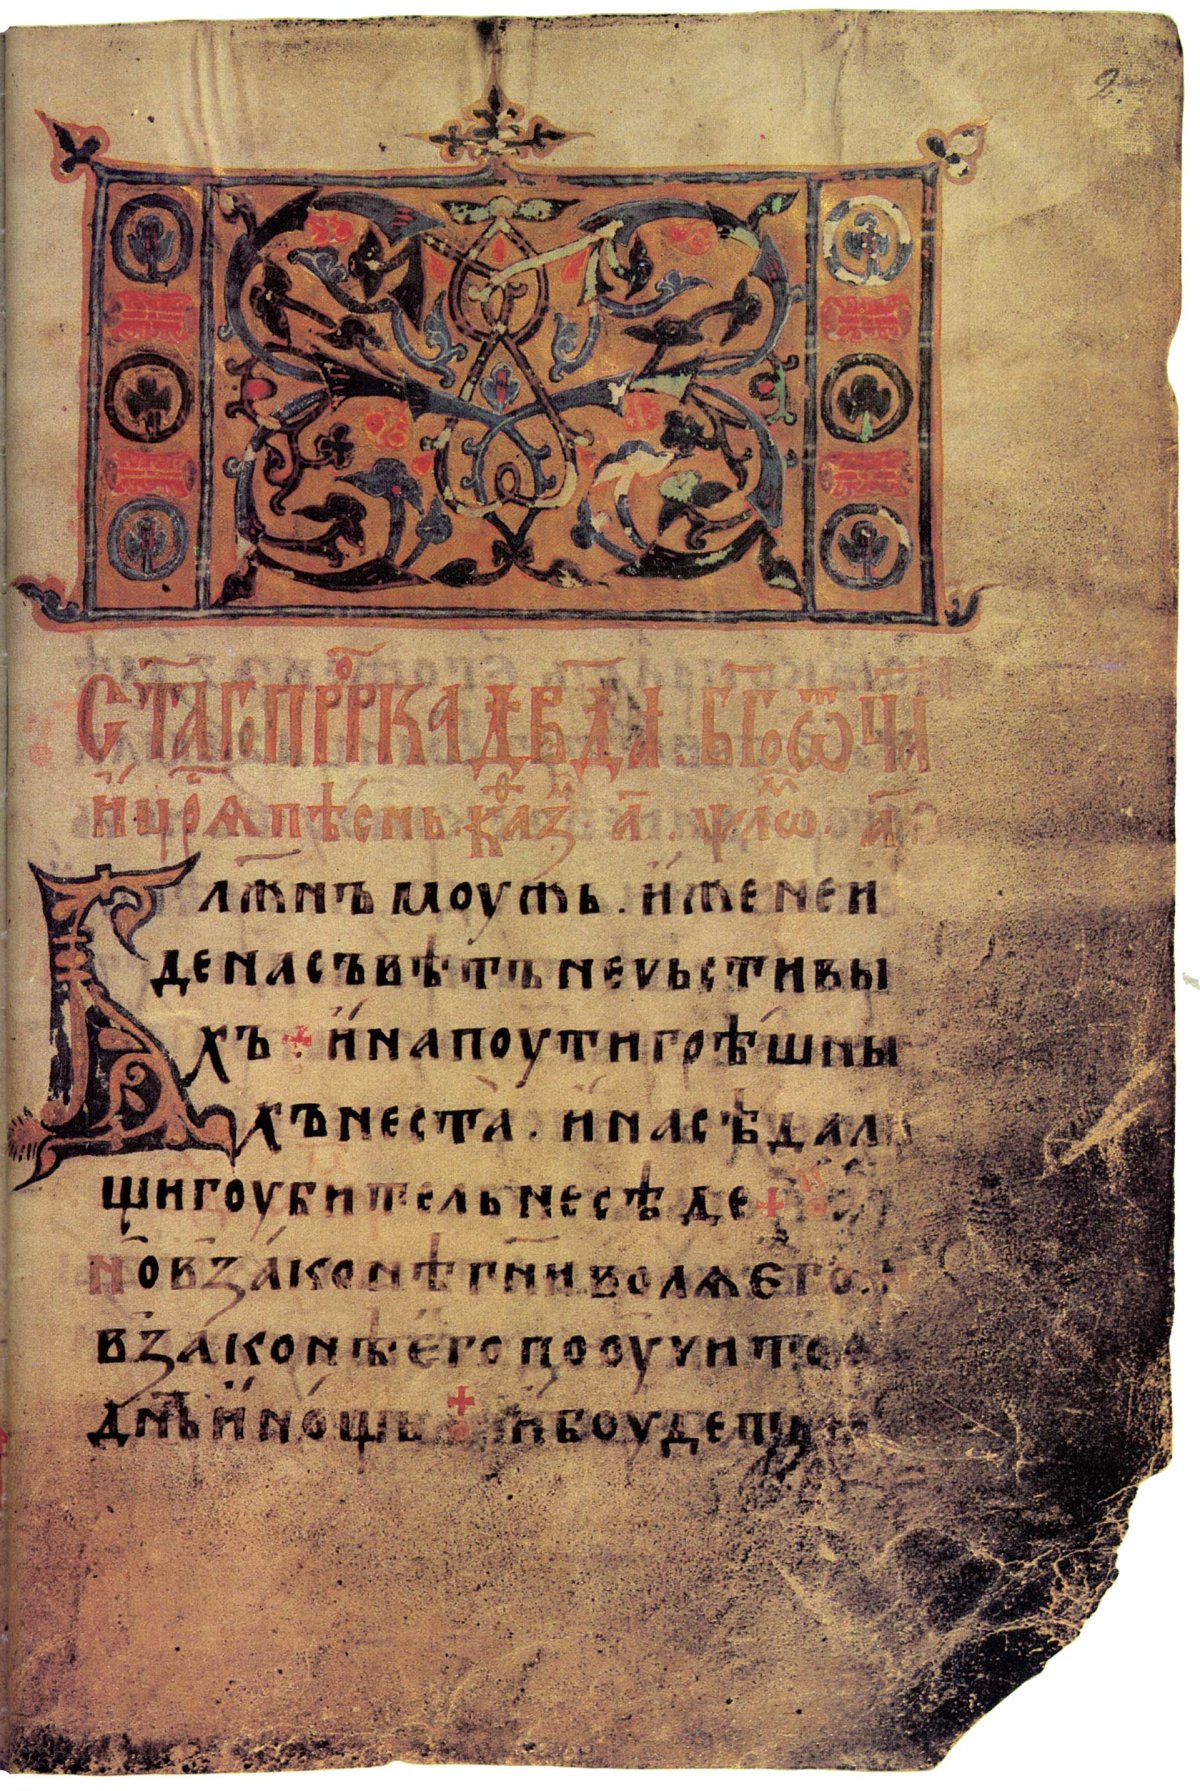 2
СТ҃АГО ПРⷪ҇РКА ДВ҃ДА · БГ҃ОѾЧ҃А
И ЦР҃Ѧ ПѢСНЬ · КАѲ҃ЗМ А҃ · ѰЛМѠ · А҃
Блж҃нъ моужь . иже не и
де на съвѣтъ нечьстивы
хъ + и на поути грѣшны
хъ не ста . и на сѣдали
щи гоубитель не сѣде +
Нⷪ въ законѣ гн҃и волꙗ его .
в законѣ его пооучитсе
дн҃ь и нощь + и боудеть